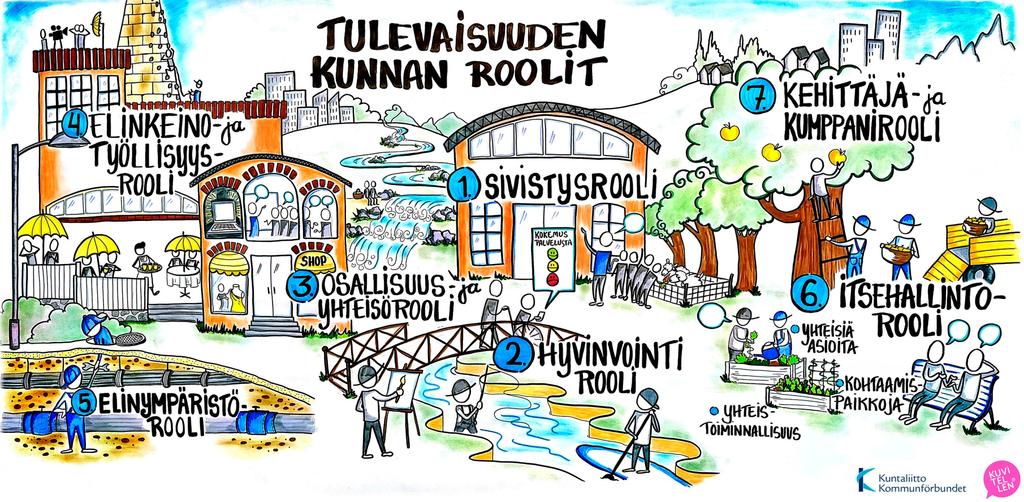 TULEVAISUUDEN
KUNNAN ROOLIT
4 ELINKEINO- ja
TYÖLLISYYS-
ROOLI
1. SIVISTYSROOLI
7. KEHITTÄJÄ- ja
KUMPPANIROOLI
KOKEMUS
PALVELUSTA
SHOP
3. OSALLISUUS- ja
YHTEISÖROOLI
2. HYVINVOINTI
ROOLI
6. ITSEHALLINTO-
ROOLI
5. ELINYMPÄRISTÖ-
ROOLI
YHTEISIÄ
ASIOITA
KOHTAAMIS-
PAIKKOJA
YHTEIS-
TOIMINNALLISUUS
Kuntaliitto
Kommunförbundet
KUVI
TEL
LEN